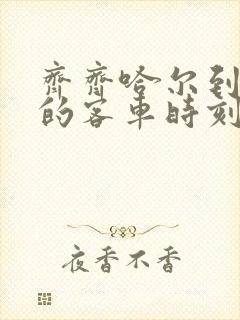 齊齊哈尔到
的客車時刻
夜香不香